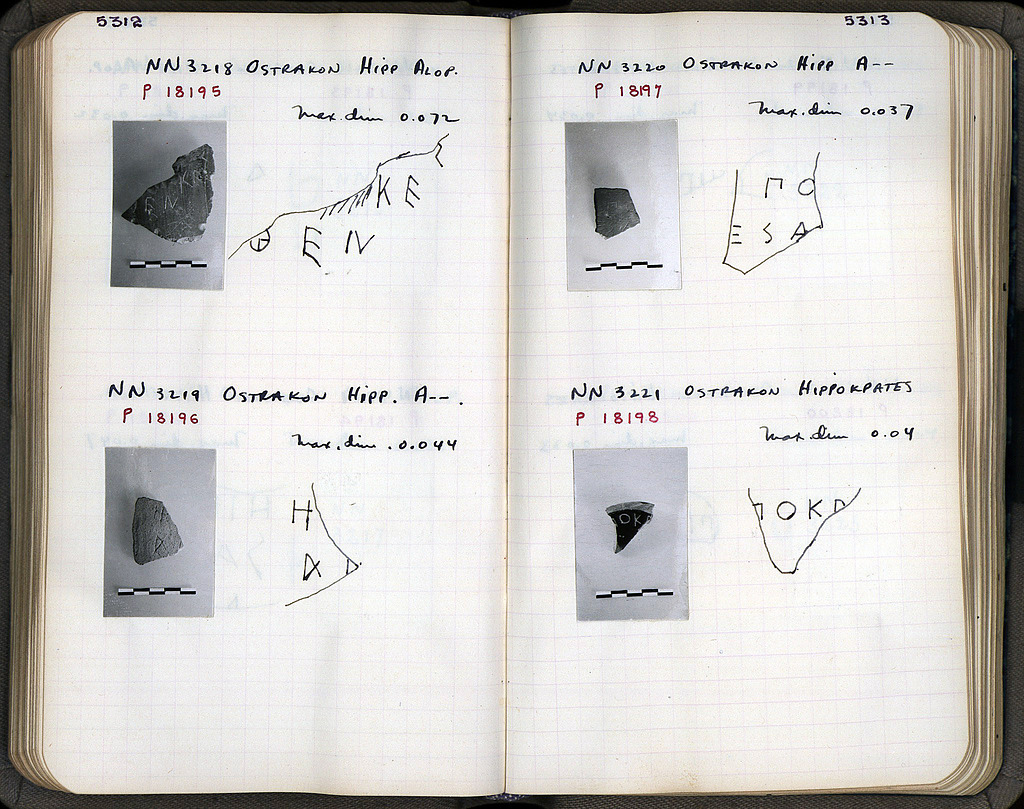 5312
NN 3218 OSTRAKON HIPP ALOP.
P 18195
Max. dim 0.072
ΚΕ
ΘΕΝ
NN 3219 OSTRAKON HIPP. A--.
P 18196
Max. dim. 0.044
Η
Α Δ
5313
NN 3220 OSTRAKON HIPP A--
P 18197
Max. dim 0.037
ΠΟ
ΕSΑ
NN 3221 OSTRAKON HIPPOKPATES
P 18198
Max. dim 0.04
ΠΟΚΡ